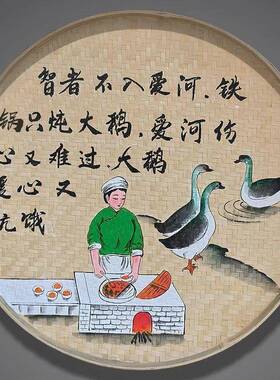 智者不入爱河、铁
锅只炖大鹅,爱河伤
心又难过,大鹅
暖心又
充饿